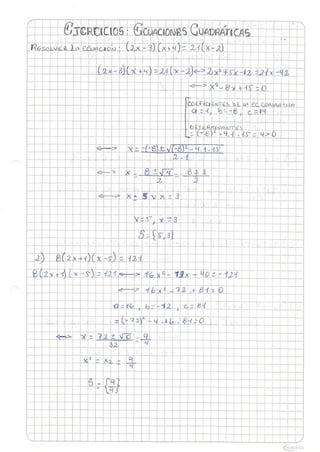 EJERCICIOS: ECUACIONES CUADRÁTICAS
RESOLVER LA ECUACIÓN: (2x-3)(x+4)=21(x-2)
(2x-3)(x+4)=21(x-2)⟷2x²+5x-12=21x-42
⟷x²-8x+15=0
COEFICIENTES DE LA EC. CUADRÁTICA
a=1, b=-8, c=15
DETERMINANTES
=(-8)²-4·1·15=4>0
⟷ x=-(-8)±√(-8)²-4·1·15 / 2·1
⟷ x=8±√4 / 2 = 8±2 / 2
⟷ x=5 v x=3
x=5, x=3
S={5,3}
2) 8(2x+1)(x-5)=121
8(2x+1)(x-5)=121⟷16x²-72x-40=-121
⟷16x²-72+81=0
a=16, b=-72, c=81
=(-72)²-4·16·81=0
⟷ x=72±√0 / 32 = 9/4
x¹=x₂=9/4
S={9/4}